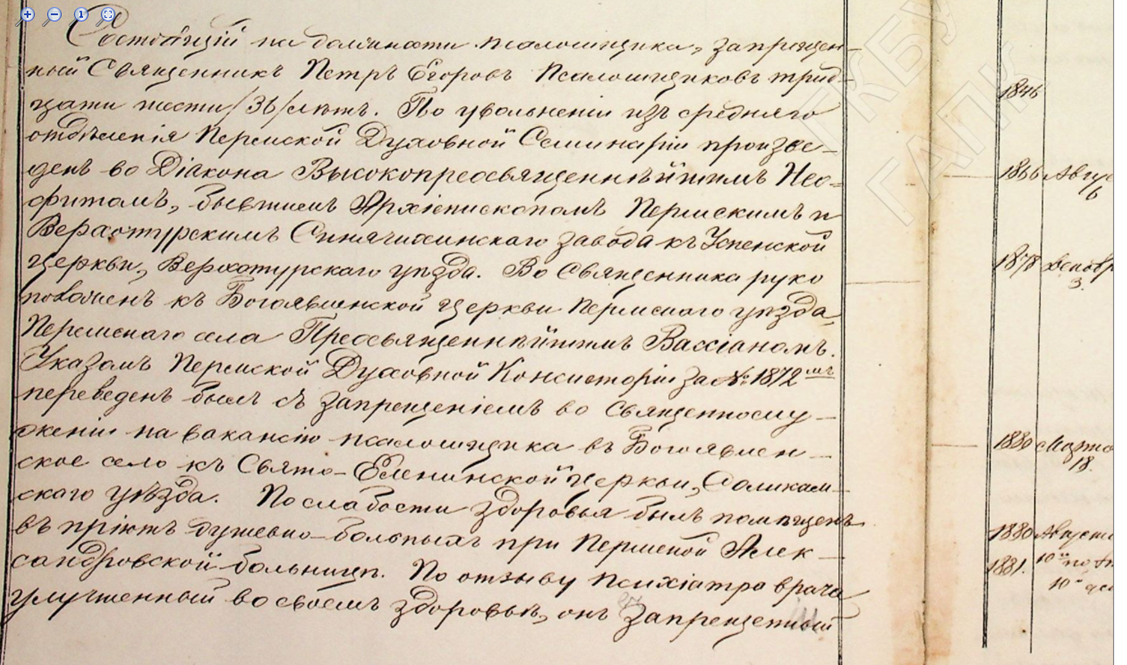 Состоящій на должности псаломщика, запрещен-
ный Священникъ Петръ Егоровъ Псаломщиковъ трид-
цати шести /36/ лѣтъ. По увольненіи изъ средняго
отдѣленія Пермской Духовной Семинаріи произве-
денъ во Діакона Высокопреосвященнѣйшимъ Нео-
фитомъ, бывшимъ Архіепископомъ Пермскимъ и
Верхотурскимъ Синячихинскаго завода къ Успенской
церкви, Верхотурскаго уѣзда. Во Священника руко
положенъ къ Богоявленской церкви Пермскаго уѣзда,
Пермскаго села Преосвященнѣйшимъ Вассіаномъ.
Указомъ Пермской Духовной Консисторіи за № 1872мъ
переведенъ былъ съ запрещеніемъ во священнослу-
женіи на вакансію псаломщика въ Богоявлен-
ское село къ Свято-Еленинской церкви, Соликам-
скаго уѣзда. По слабости здоровья былъ помѣщенъ
въ пріютъ душевно-больныхъ при Пермской Алек-
сандровской больницѣ. По отзыву психіатра врача
улучшенный во своемъ здоровьѣ, онъ Запрещенный
1846
1866 Авгус
6
1878 Декабр
3.
1880 Марта
18.
1880 Августа
1881. 10 по
10
ГКБУ
ГАПК